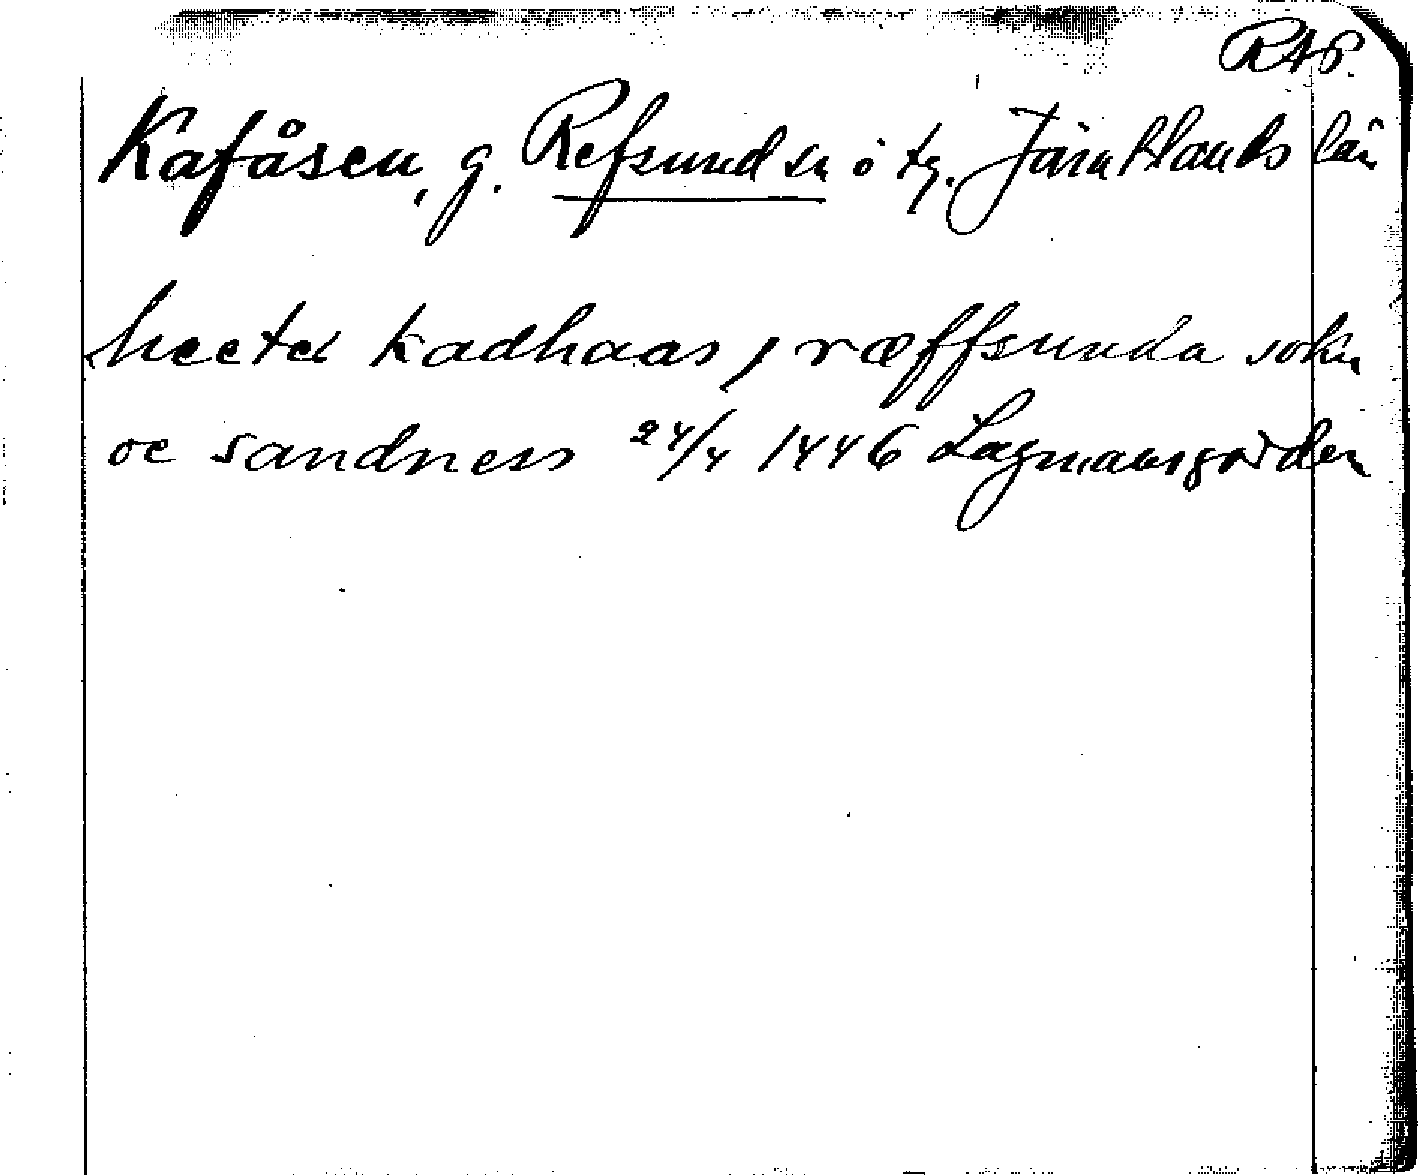 RAP.
Kafåsen, g. Refsund sn ö tg. Jämtlands län
heeter kadhaas, ræffsunda sokn
oc sandness 24/4 1446 Lagmansgården